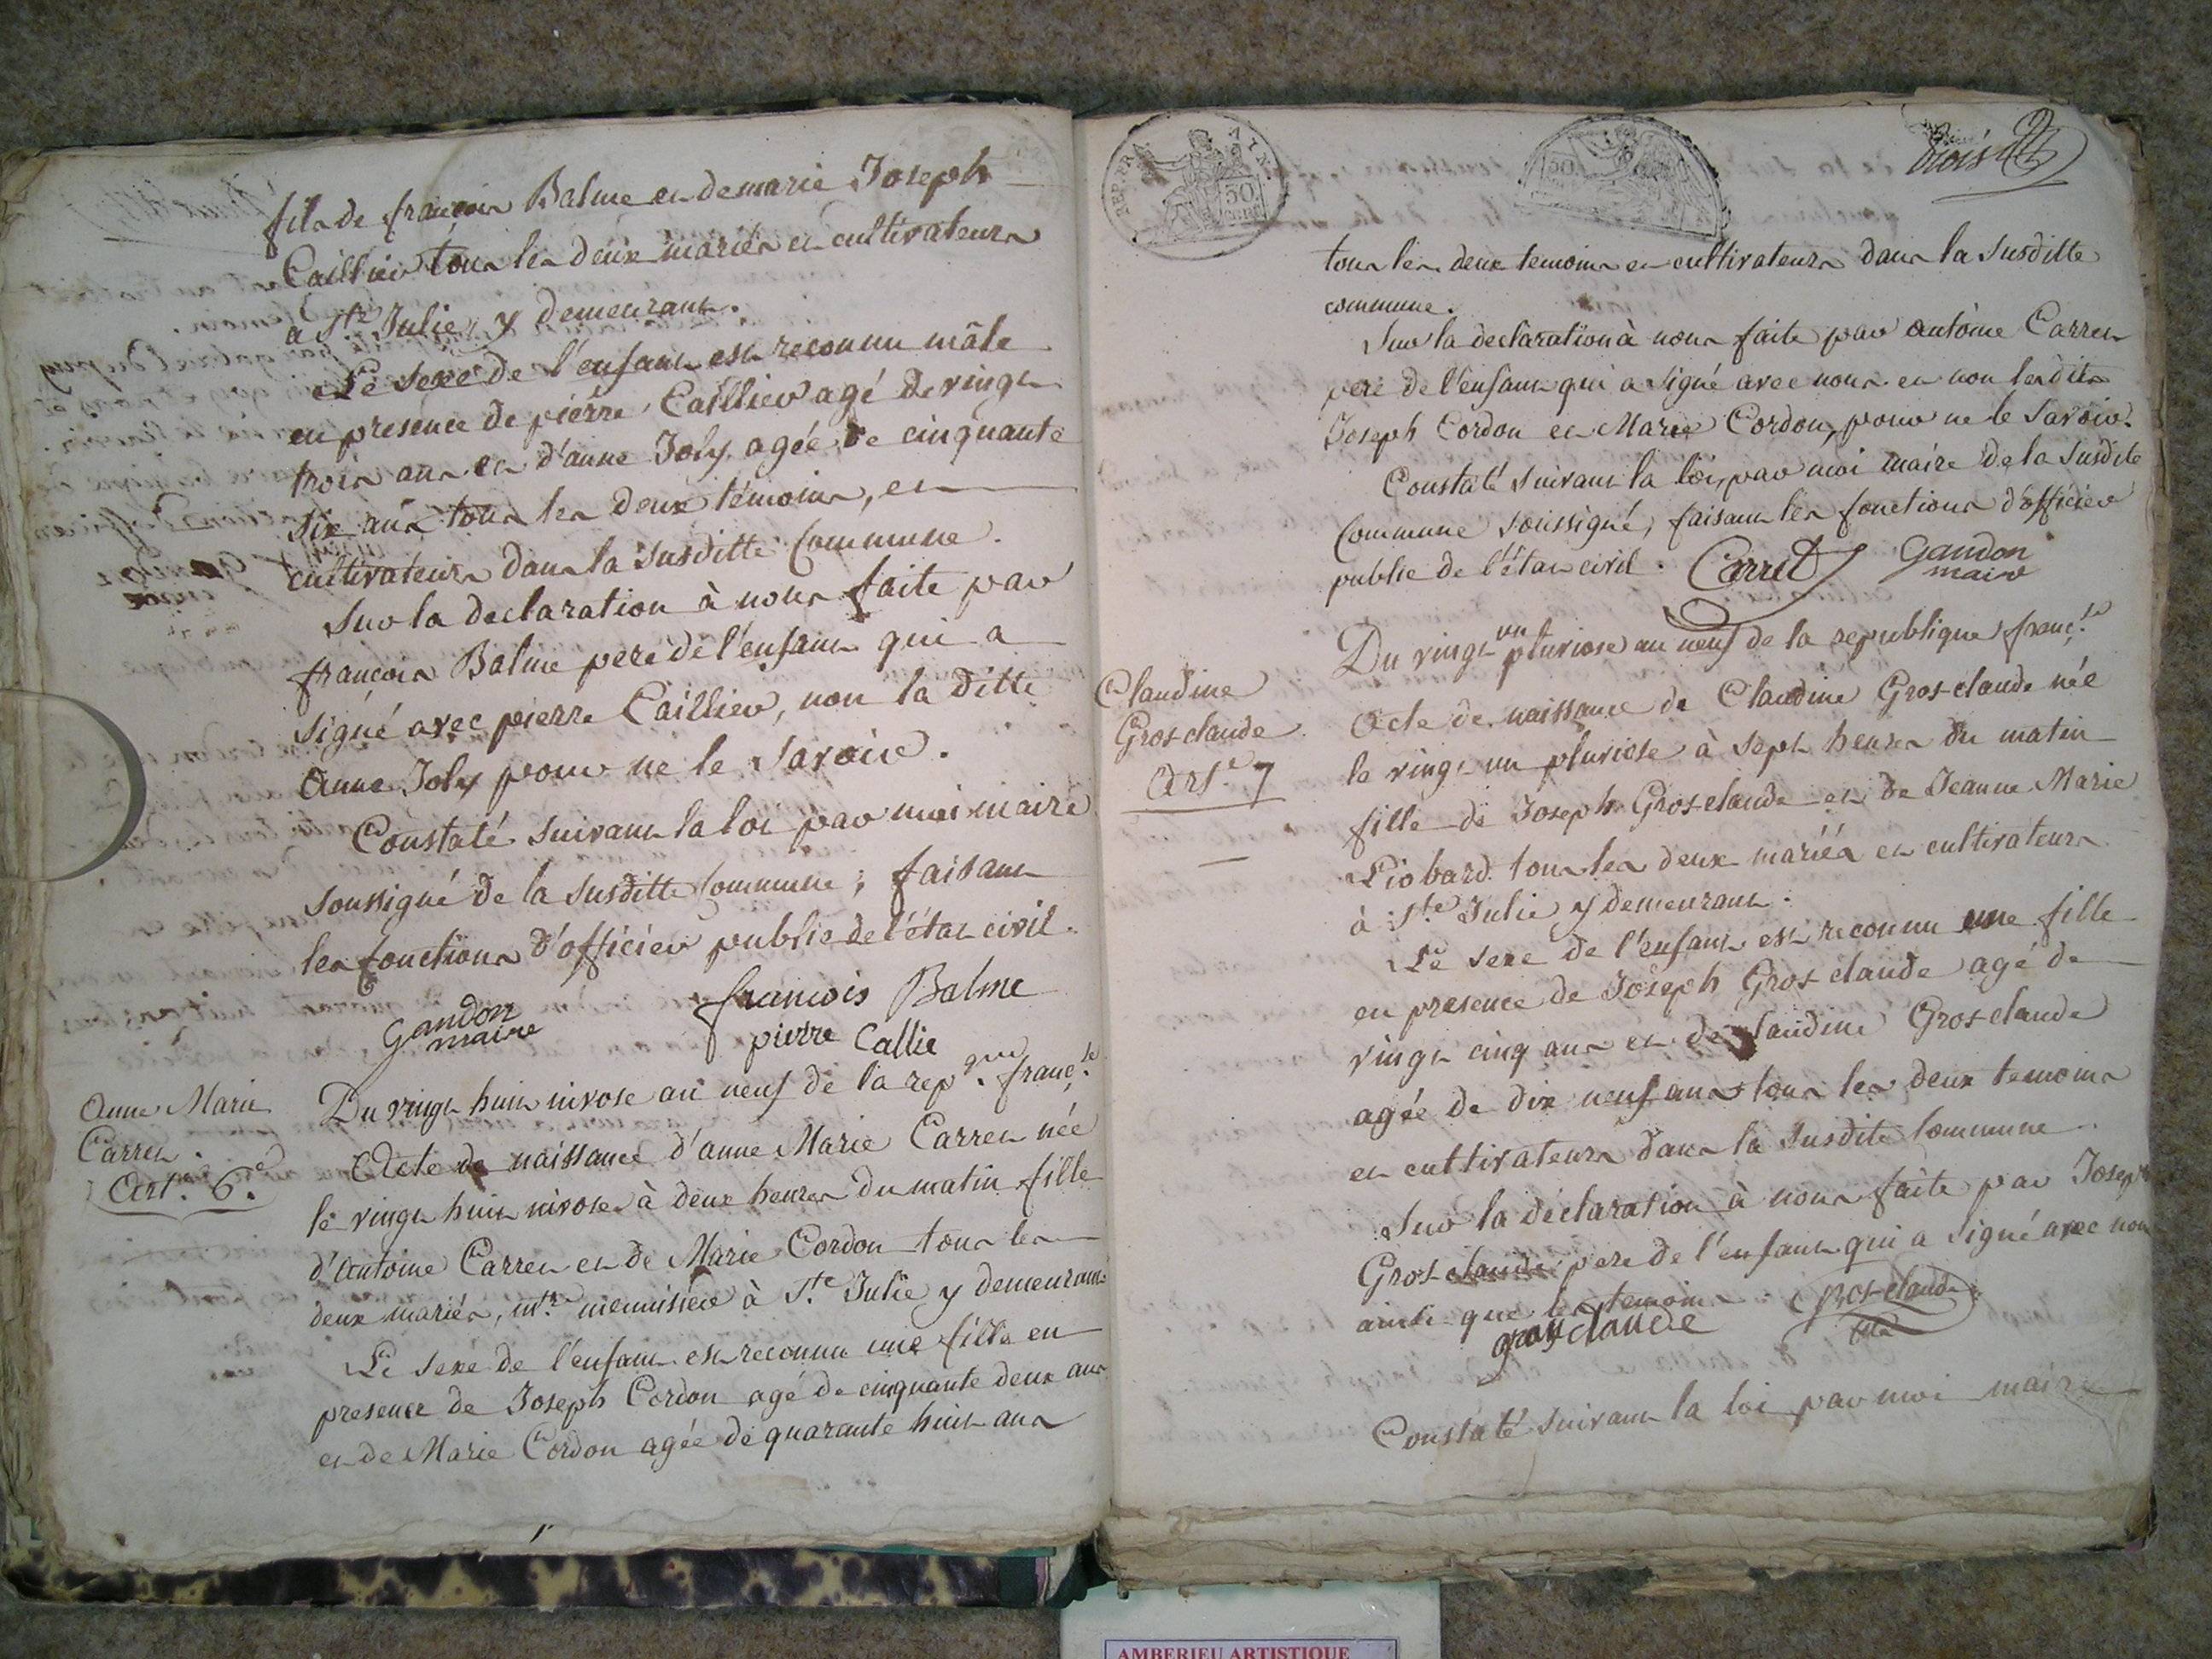 fils de françois Balme et de marie Joseph
Caillier tous les deux mariés et cultivateurs
a Ste Julie y demeurant.
Le sexe de l'enfant est reconnu mâle
en presence de pierre Caillier agé de vingt
trois ans et d'anne Joly agée de cinquante
six ans tous les deux témoins, et
cultivateurs dans la susditte Commune.
Sur la declaration à nous faite par
françois Balme pere de l'enfant qui a
signé avec pierre Caillier, non la ditte
Anne Joly pour ne le savoir.
Constaté suivant la loi par moi maire
soussigné de la susditte Commune, faisant
les fonctions d'officier public de l'état civil.
Gandon
maire
francois Balme
pierre Callie
Anne Marie
Carret.
Art. 6e.
Du vingt huit nivose an neuf de la repque. franç.se
Acte de naissance d'anne Marie Carret née
le vingt huit nivose à deux heures du matin fille
d'Antoine Carret et de Marie Cordon tous les
deux mariés, mtre menuisier à Ste Julie y demeurant
Le sexe de l'enfant est reconnu une fille en
presence de Joseph Cordon agé de cinquante deux ans
et de Marie Cordon agée de quarante huit ans
REP. FRA. AIN
50
CENT
50
trois
tous les deux temoins et cultivateurs dans la susditte
commune.
Sur la declaration à nous faite par antoine Carret
pere de l'enfant qui a signé avec nous et non lesdits
Joseph Cordon et Marie Cordon, pour ne le savoir.
Constaté suivant la loi, par moi maire de la susdite
Commune soussigné, faisant les fonctions d'officier
public de l'état civil. Carret Gandon
maire
Du vingt un pluviose an neuf de la republique franç.se
Claudine
Gros-claude
Art.e 7
Acte de naissance de Claudine Gros-claude née
le vingt un pluviose à sept heures du matin
fille de Joseph Gros-claude et de Jeanne Marie
Liobard tous les deux mariés et cultivateurs
à Ste Julie y demeurant.
Le sexe de l'enfant est reconnu une fille
en presence de Joseph Gros-claude agé de
vingt cinq ans et de Claudine Gros-claude
agée de dix neuf ans tous les deux temoins
et cultivateurs dans la susdite Commune
Sur la declaration à nous faite par Joseph
Gros-claude pere de l'enfant qui a signé avec nous
ainsi que les temoins. Gros-claude
gros claude
Constaté suivant la loi par moi maire
AMBERIEU ARTISTIQUE